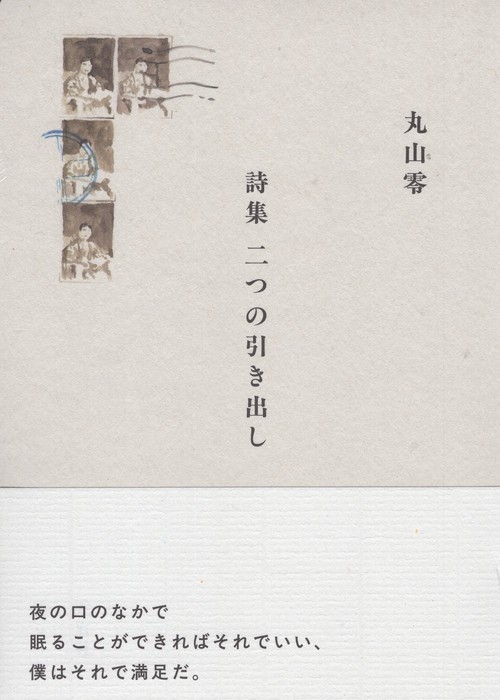 丸山零
詩集 二つの引き出し
夜の口のなかで
眠ることができればそれでいい、
僕はそれで満足だ。